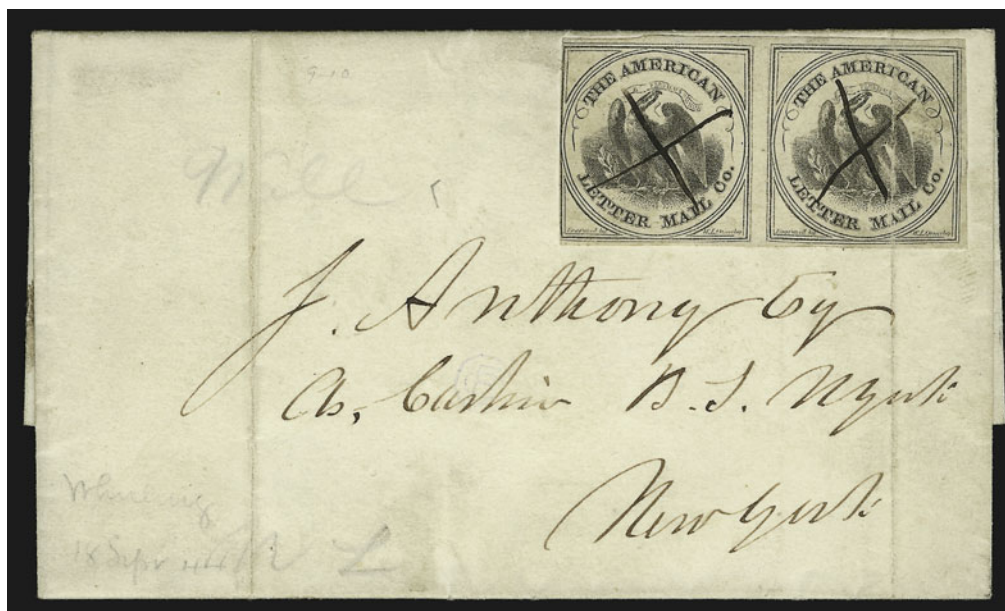 9-10
THE AMERICAN
LETTER MAIL CO.
THE AMERICAN
LETTER MAIL CO.
J. Anthony Esq
As. Cashier B. S. NYork
New York
Wheeling
18 Sept 44